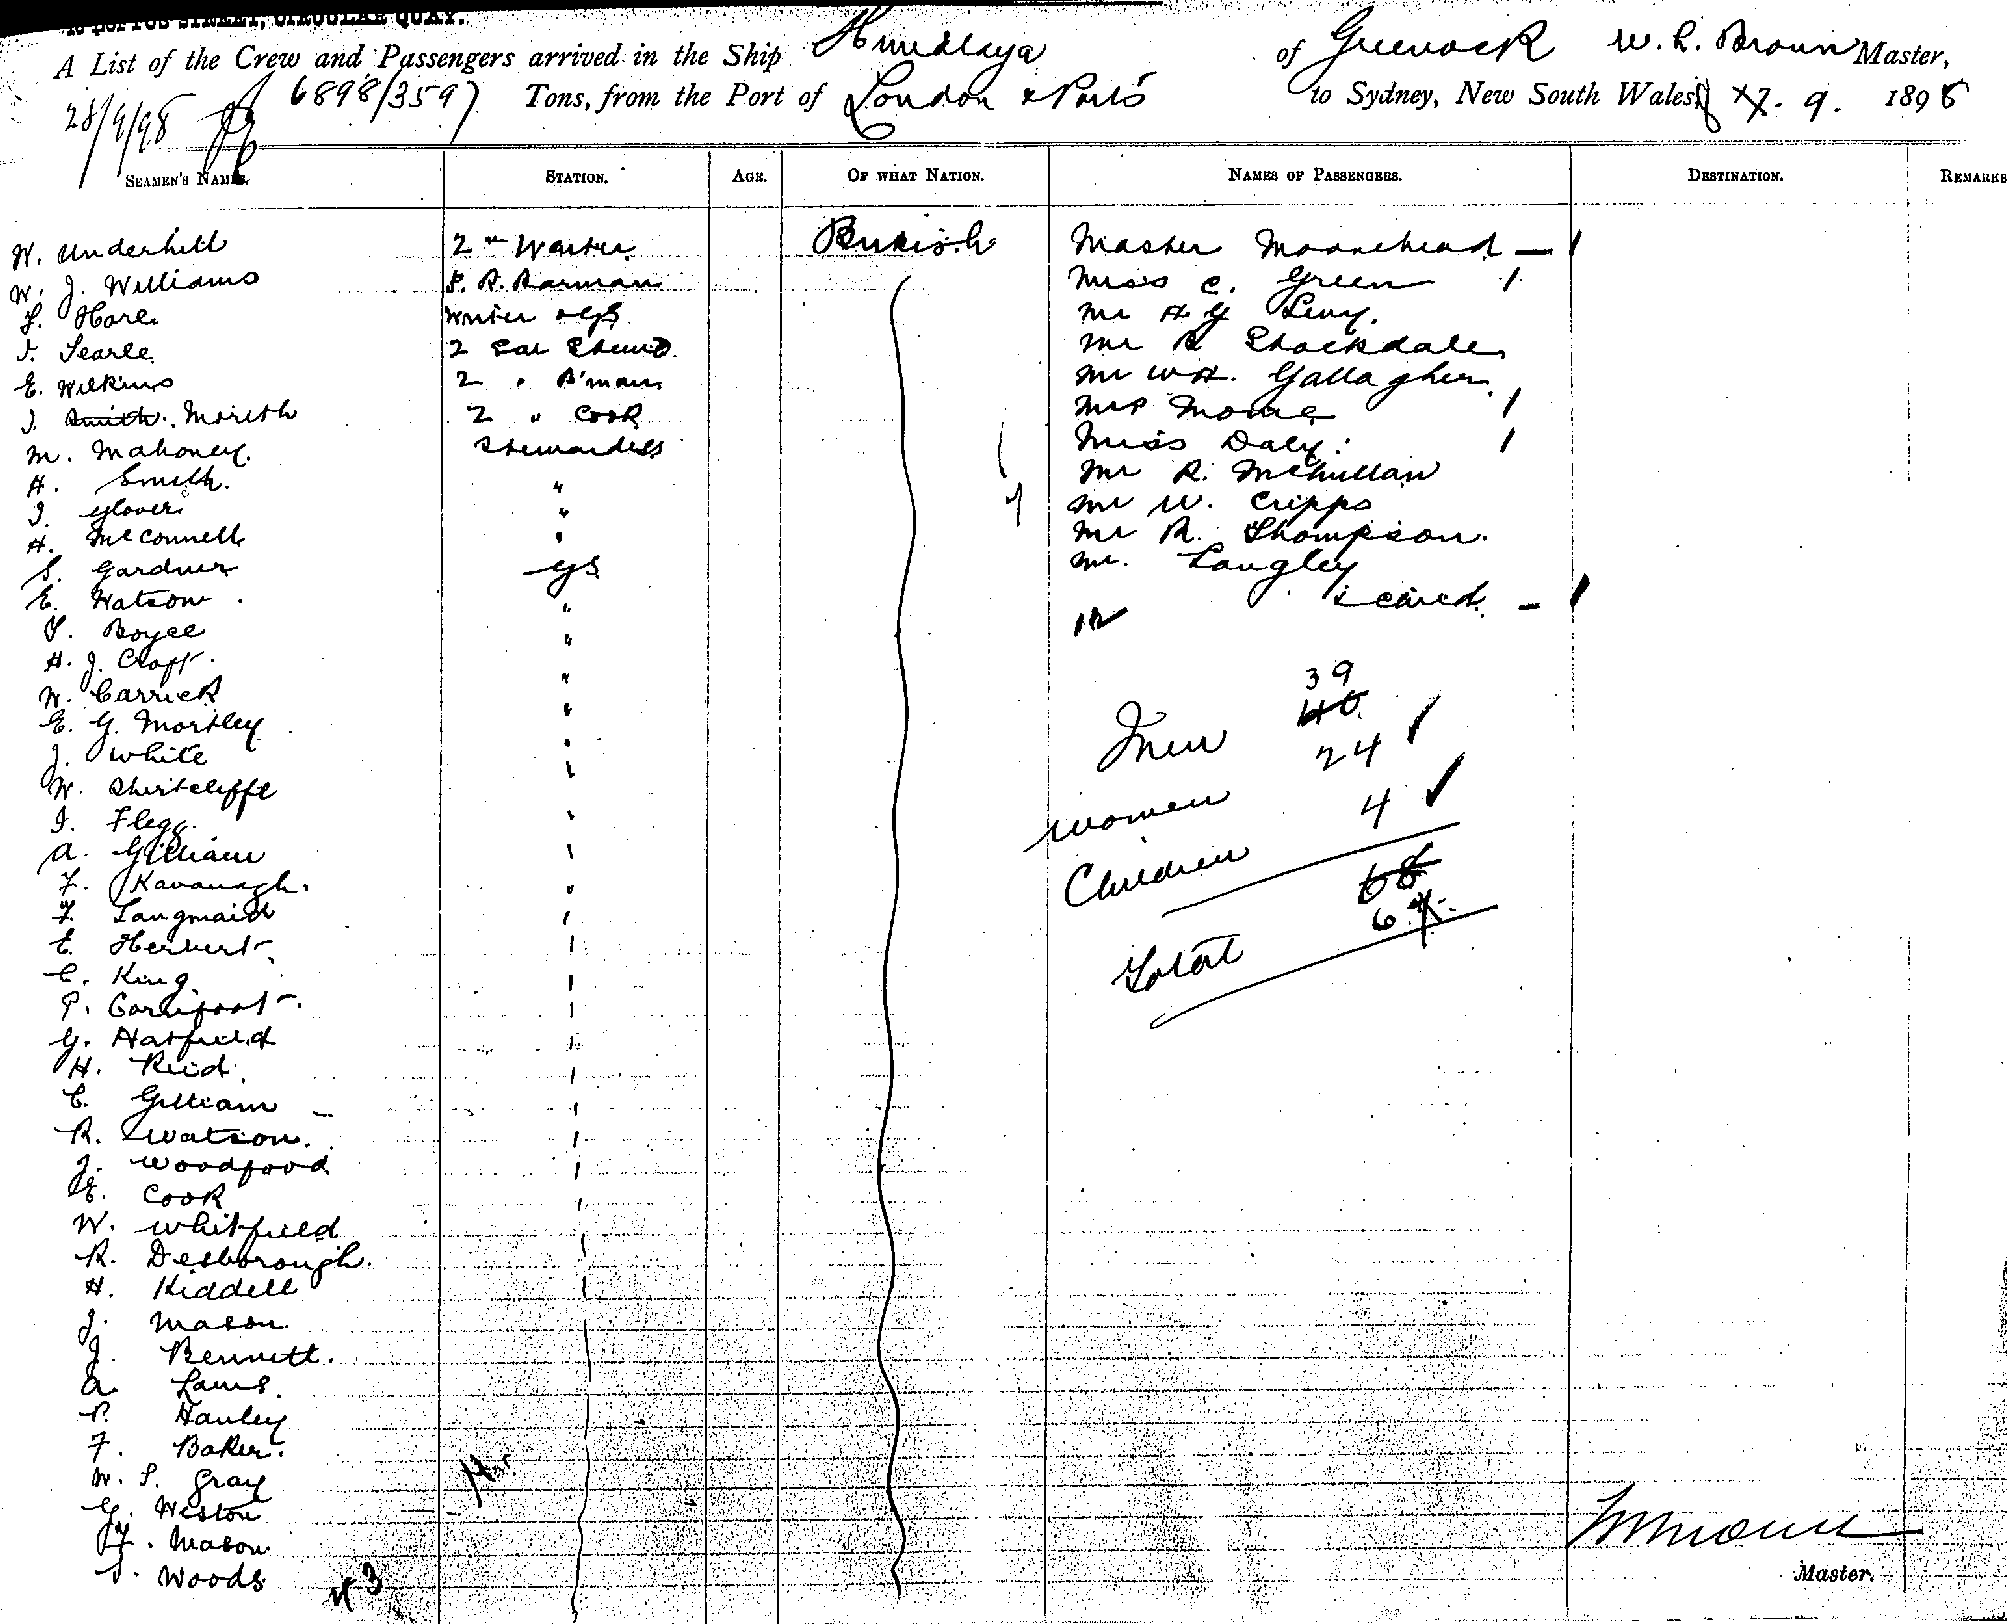 STREET, CIRCULAR QUAY.
A List of the Crew and Passengers arrived in the Ship Himalaya of Greenock W. L. Brown Master,
28/9/98 6898/3597 Tons, from the Port of London & Ports to Sydney, New South Wales 9. 1898
SEAMEN'S NAMES. STATION. AGE. OF WHAT NATION. NAMES OF PASSENGERS. DESTINATION. REMARKS
W. Underhill 2nd Waiter British Master Moorehead — 1
W. J. Williams S. R. Barman Miss C. Green 1
Hare Writer & GS Mr H G Levy.
Searle 2 Sal Steward Mr R Stockdale
E. Wilkins 2 " B'man Mr W H. Gallagher
J. Smith. Morith 2 " Cook Mrs 1
M. Mahoney. Stewardess Miss Daly. 1
H. Smith. " Mr R. McMullan
J. Glover " Mr W. Cripps
H. McConnell " Mr R. Thompson.
S. Gardner GS Mr. Langley
E. Watson " — 1
Boyce " 12
H. J. Croft "
W. Carrick " 39
E. G. Mortley " Men 40
J. White " 24
W. Shirtcliffe " Women
J. Flegg. " 4
A. Gilliam " Children
F. Kavanagh. " 68
F. Langmaid " 67
E. Herbert " Total
C. King "
P. Cornfoot "
G. Hatfield "
H. Reid "
C. Gilliam "
R. Watson. "
J. Woodford "
E. Cook "
W. Whitfield "
R. Desborough.
H. Kiddell
J. Mason
J. Bennett.
A. Laws.
P. Hanley
F. Baker.
W. S. Gray
G. Weston
F. Mason
Woods 43
Master.